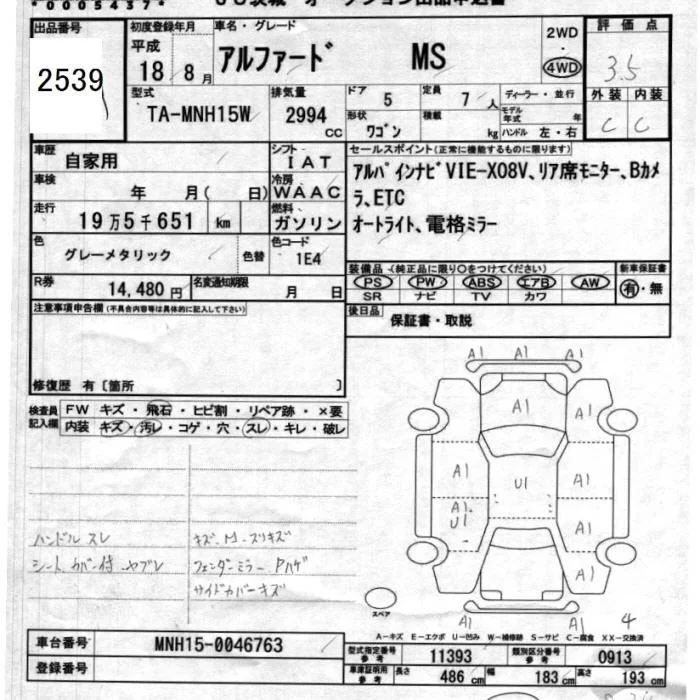 *0005437*
出品番号
2539
初度登録年月
平成
18 / 8 月
車名・グレード
アルファード MS
2WD
・
4WD
評価点
3.5
型式
TA-MNH15W
排気量
2994
CC
ドア
5
定員
7 人
ディーラー・並行
モデル年式 年
形状
ワゴン
積載
kg
ハンドル 左・右
外装 内装
C C
車歴
自家用
シフト
IAT
車検
年 月( 日)
冷房
WAAC
走行
19万5千651 km
燃料
ガソリン
色
グレーメタリック
色替
色コード
1E4
R券
14,480円
名変通知期限
月 日
セールスポイント(正常に機能するものに限ります)
アルパインナビVIE-X08V、リア席モニター、Bカメ
ラ、ETC
オートライト、電格ミラー
装備品(純正品に限り○をつけてください)
PS PW ABS エアB AW
SR ナビ TV カワ
新車保証書
有・無
後日品
保証書・取説
注意事項申告欄(不具合内容等は具体的に記入して下さい)
修復歴 有〔箇所 〕
検査員
記入欄
FW キズ・飛石・ヒビ割・リペア跡・×要
内装 キズ・汚レ・コゲ・穴・スレ・キレ・破レ
ハンドル スレ
シート カバー付 ヤブレ
キズ・M・スリキズ
フェンダーミラー Pハゲ
サイドカバーキズ
A1 A1 A1
A1
A1 A1
A1 U1 A1
A1
U1
A1
A1
A1
スペア
4
A-キズ E-エクボ U-凹み W-補修跡 S-サビ C-腐食 XX-交換済
車台番号
MNH15-0046763
登録番号
型式指定番号
参考
11393
類別区分番号
参考
0913
車庫証明用
参考
長さ
486 cm
幅
183 cm
高さ
193 cm